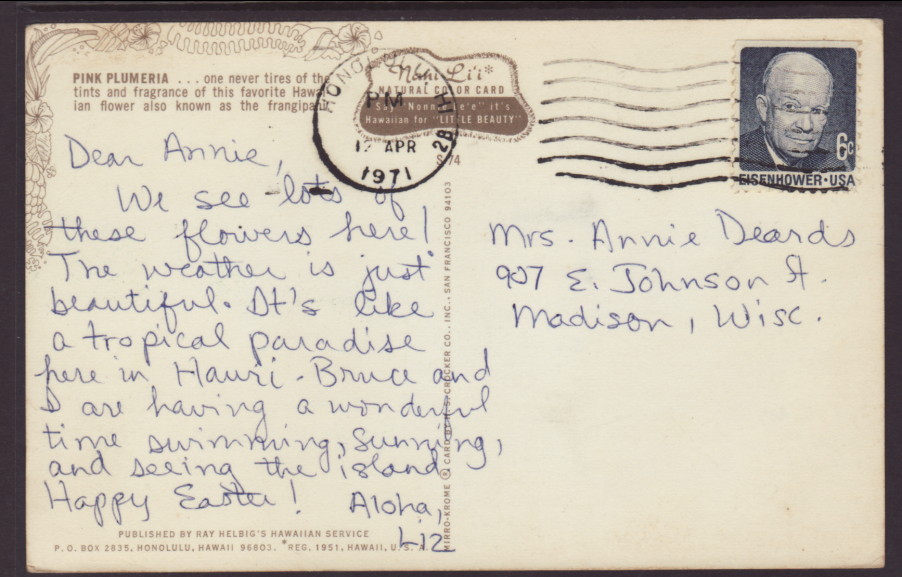 PINK PLUMERIA . . . one never tires of the
tints and fragrance of this favorite Hawa
ian flower also known as the frangipa
Nani Li'i*
NATURAL COLOR CARD
Say "Nonnie Lee'e" it's
Hawaiian for "LITTLE BEAUTY"
HONO
PM
HI
12 APR
1971
S-74
6c
EISENHOWER·USA
Dear Annie,
We see lots of
these flowers here!
The weather is just
beautiful. It's like
a tropical paradise
here in Hawii. Bruce and
I are having a wonderful
time swimming, sunning,
and seeing the island.
Happy Easter! Aloha,
Liz
Mrs. Annie Deards
927 E. Johnson St.
Madison, Wisc.
MIRRO-KROME ® CARD BY H. S. CROCKER CO., INC., SAN FRANCISCO 94103
PUBLISHED BY RAY HELBIG'S HAWAIIAN SERVICE
P.O. BOX 2835, HONOLULU, HAWAII 96803. *REG. 1951, HAWAII, U. S. A.